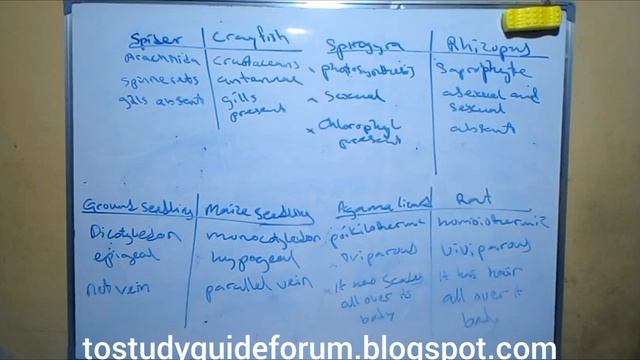 Spider Crayfish
Arachnida Crustaceans
Spinnerets antennae
gills absent gills present
Spirogyra Rhizopus
photosynthesis Saprophyte
Sexual asexual and sexual
Chlorophyl present absent
Ground seedling Maize seedling
Dicotyledon monocotyledon
epigeal hypogeal
net vein parallel vein
Agama lizard Rat
poikilothermic homoiothermic
Oviparous Viviparous
It has scales all over its body It has hair all over it body
tostudyguideforum.blogspot.com